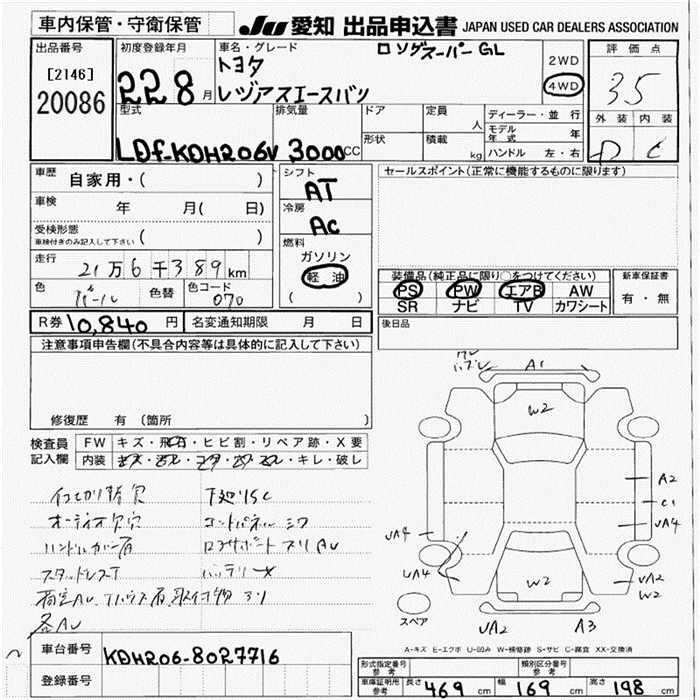 車内保管・守衛保管
JU 愛知 出品申込書 JAPAN USED CAR DEALERS ASSOCIATION
出品番号
[2146]
20086
初度登録年月
22 8 月
車名・グレード
トヨタ
ロングスーパーGL
レジアスエースバン
2WD
4WD
評価点
3.5
外装 内装
D C
型式
LDF-KDH206V
排気量
3000cc
ドア
形状
定員
人
積載
kg
ディーラー・並行
モデル年式 年
ハンドル 左・右
車歴
自家用・( )
車検
年 月( 日)
受検形態
車検付きのみ記入して下さい ( )
走行
21万6千389km
色
パール
色替
色コード
070
R券 10,840 円
名変通知期限 月 日
シフト
AT
冷房
AC
燃料
ガソリン
軽油
( )
セールスポイント(正常に機能するものに限ります)
装備品(純正品に限り○をつけてください)
PS PW エアB AW
SR ナビ TV カワシート
新車保証書
有・無
後日品
注意事項申告欄(不具合内容等は具体的に記入して下さい)
修復歴 有 (箇所 )
検査員記入欄
FW キズ・飛石・ヒビ割・リペア跡・X要
内装 キズ・汚レ・コゲ・・キレ・破レ
オーディオ欠穴
ハンドルカバー有
スタッドレスT
各AU
下廻りSC
バッテリーX
A1
W2
A2
C1
UA4
UA4
UA4
W2
UA2
W2
UA2
A3
スペア
A-キズ E-エクボ U-凹み W-補修跡 S-サビ C-腐食 XX-交換済
車台番号 KDH206-8027716
登録番号
形式指定番号 参考
類別区分番号 参考
車庫証明用 参考
長さ 469 cm 幅 169 cm 高さ 198 cm